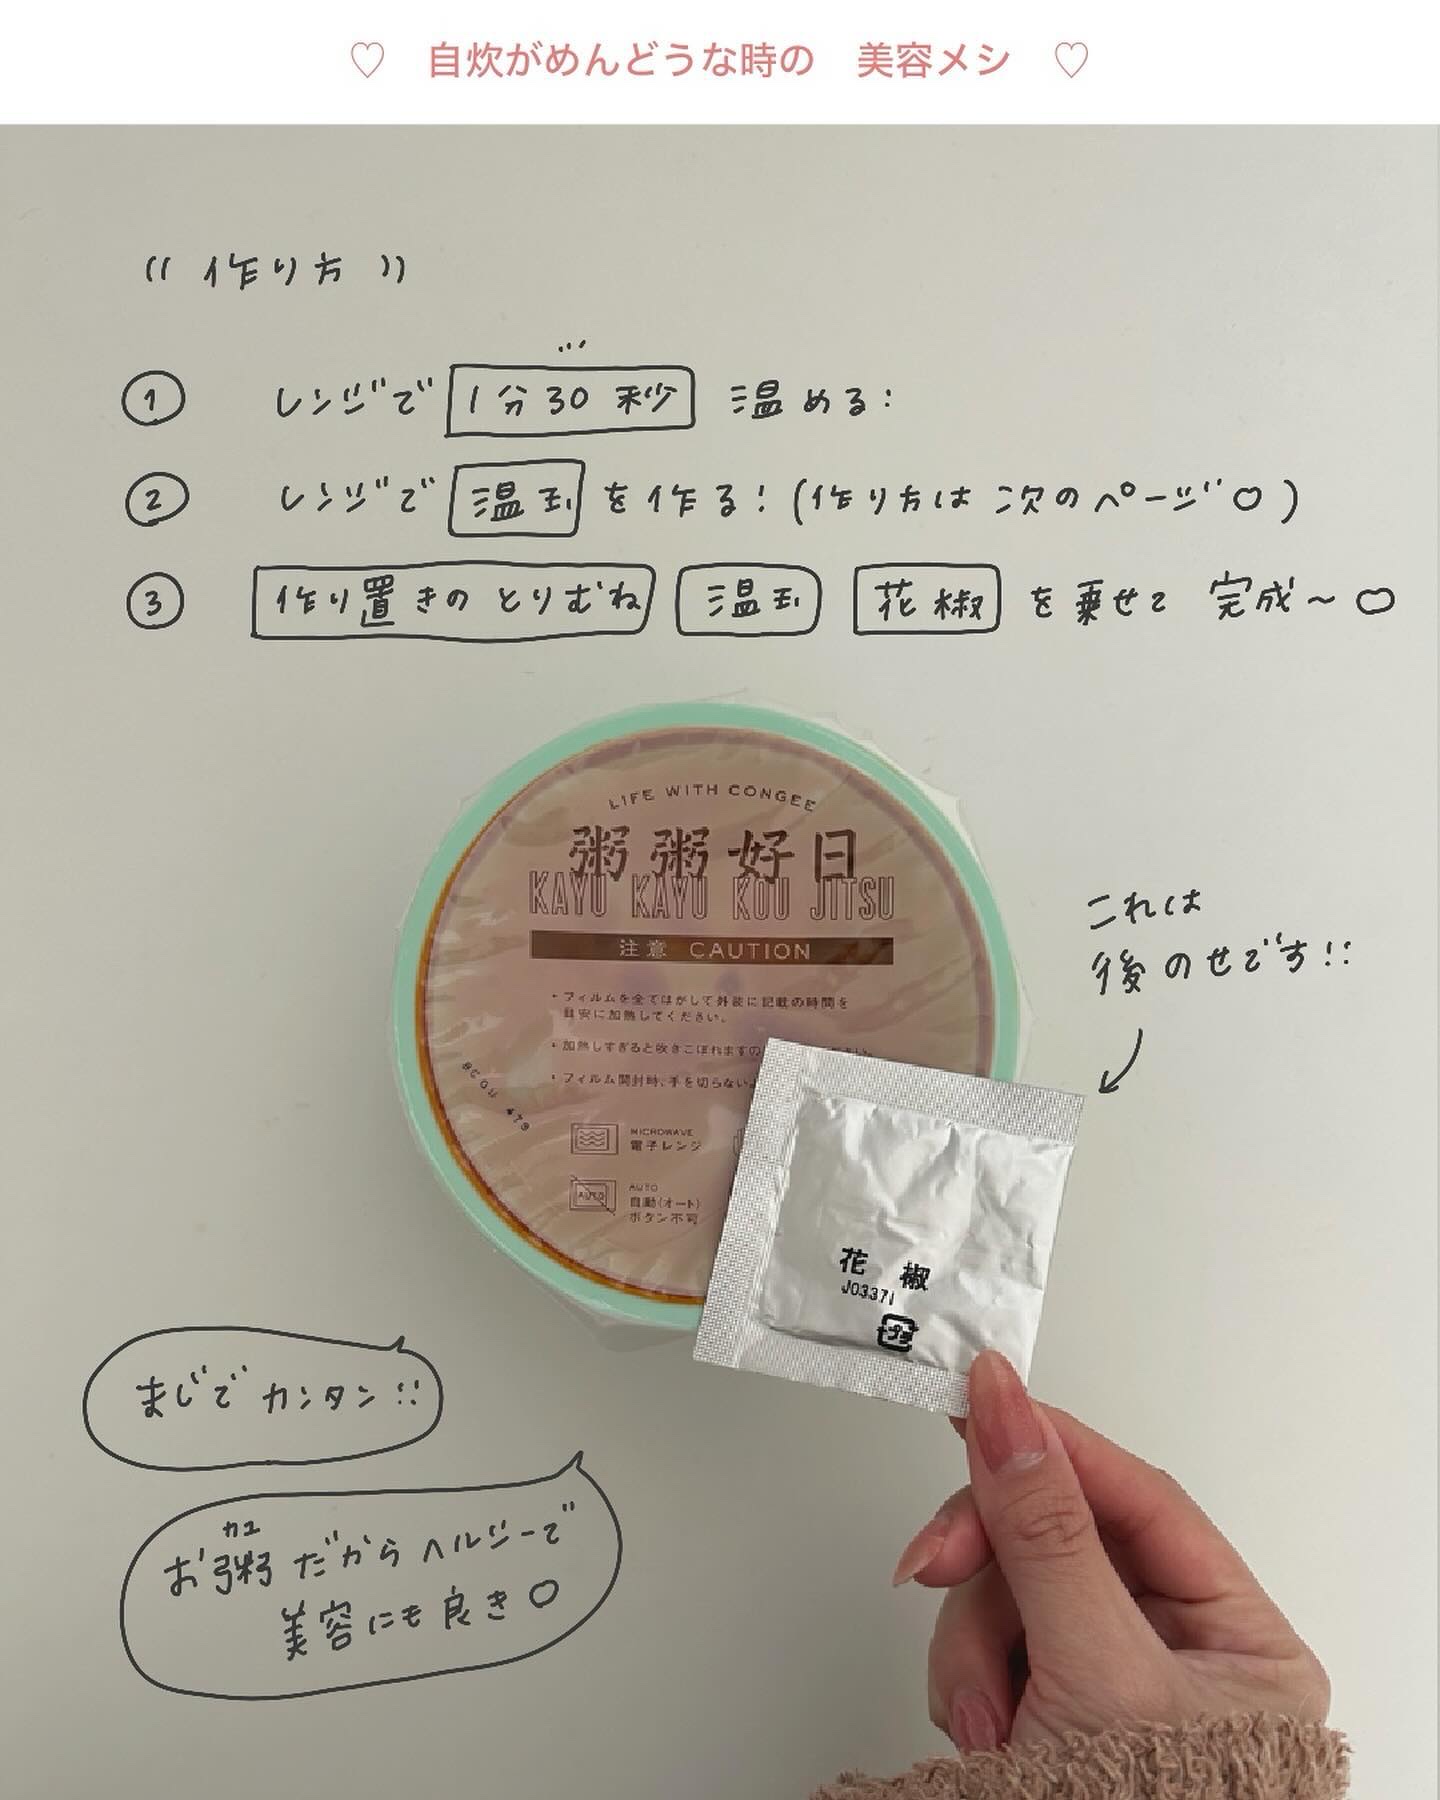 ♡ 自炊がめんどうな時の 美容メシ ♡
(( 作り方 ))
① レンジで 1分30秒 温める!
② レンジで 温玉 を作る!(作り方は次のページ♡)
③ 作り置きのとりむね 温玉 花椒 を乗せて 完成~♡
LIFE WITH CONGEE
粥粥好日
KAYU KAYU KOU JITSU
注意 CAUTION
・フィルムを全てはがして外装に記載の時間を
目安に加熱してください。
・加熱しすぎると吹きこぼれますの
・フィルム開封時、手を切らない
MICROWAVE
電子レンジ
AUTO
AUTO
自動(オート)
ボタン不可
これは
後のせです!!
花椒
J03371
プラ
まじでカンタン!!
カユ
お粥だからヘルシーで
美容にも良き♡